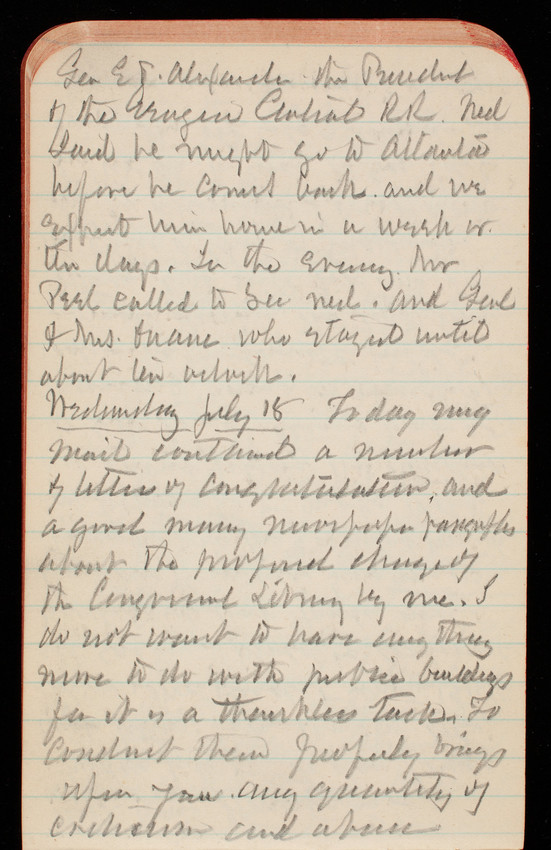 Gen E. P. Alexander the President
of the Georgia Central R.R. Ned
said he might go to Atlanta
before he comes back. and we
expect him home in a week or
ten days. In the evening Mr
Peel called to see Ned. and Genl
& Mrs. Duane who stayed until
about ten oclock.
Wednesday July 18 Today my
mail contained a number
of letters of congratulation, and
a good many newspaper paragraphs
about the proposed charge of
the Congressional Library by me. I
do not want to have anything
more to do with public buildings
for it is a thankless task. To
conduct them properly brings
upon you any quantity of
criticism and abuse